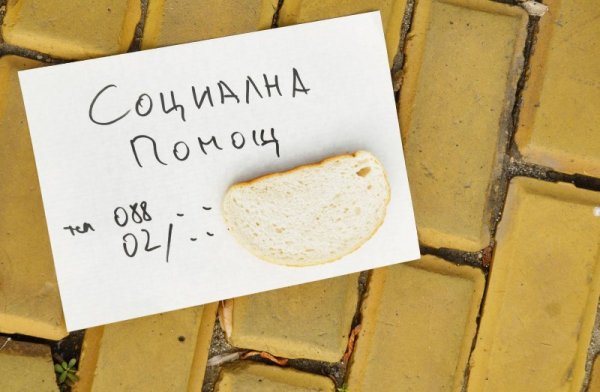 Социална
Помощ
тел 088 -- --
02/ -- --